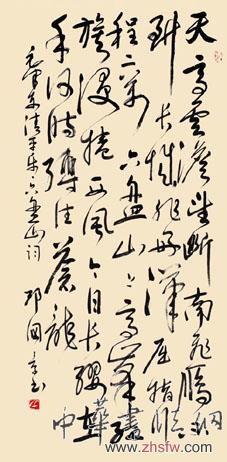 天高雲淡望断南飛雁不
到长城非好漢屈指行
程二万六盘山上高峰红
旗漫捲西风今日长缨在
手何时缚住蒼龍
毛泽东清平乐六盘山词 邓国书
中華書法網
www.zhsfw.com